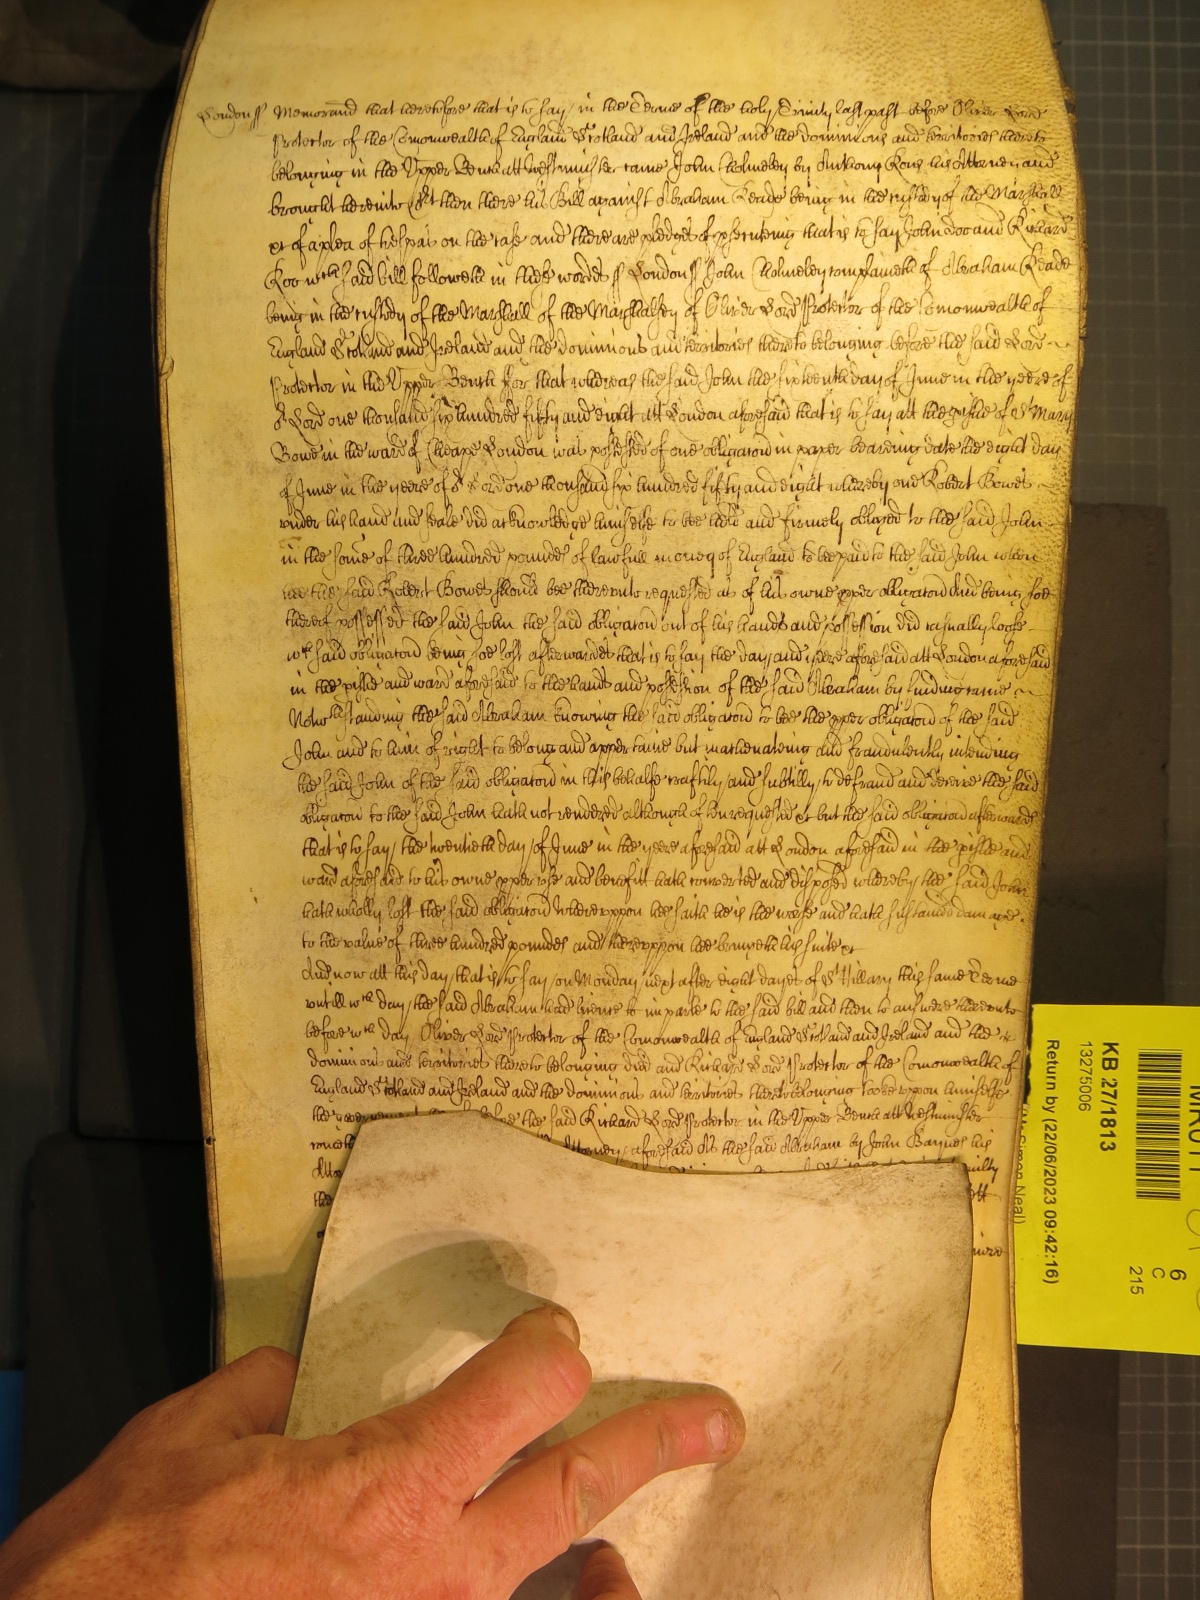 London ss Memorand that heretofore that is to say in the Terme of the holy Trinity last past before Oliver Lord
Protector of the Comonwealth of England Scotland and Ireland and the dominions and territories thereto
belonging in the Upper Bench att Westminster came John Cholmeley by Anthony Rous his Attorney and
brought hereinto Cort then there his Bill against Abraham Reade being in the custody of the Marshall
&c of a plea of trespas on the case and there are pledges of psecuteing that is to say John doo and Richard
Roo wch said bill followeth in these wordes ss London ss John Cholmeley complaineth of Abraham Reade
being in the custody of the Marshall of the Marshalsey of Oliver Lord Protector of the Comonwealth of
England Scotland and Ireland and the dominions and territories thereto belonging before the said Lord
Protector in the Upper Bench for that whereas the said John the sixteenth day of June in the yeere of
or Lord one thousand six hundred fifty and eight att London aforesaid that is to say att the pishe of St Mary
Bowe in the ward of Cheape London was possessed of one obligacon in paper beareing date the eight day
of June in the yeere of or Lord one thousand six hundred fifty and eight whereby one Robert Bowes
under his hand and seale did acknowledge himselfe to bee held and firmely obliged to the said John
in the some of three hundred poundes of lawfull money of England to bee paid to the said John when
hee the said Robert Bowes should bee thereunto requested as of his owne pper obligacon And being soe
thereof possessed the said John the said obligacon out of his hands and possession did casually loose
wch said obligacon being soe lost afterwardes that is to say the day and yeere aforesaid att London aforesaid
in the pishe and ward aforesaid to the hands and possession of the said Abraham by finding came
Notwthstanding the said Abraham knowing the said obligacon to bee the pper obligacon of the said
John and to him of right to belong and appertaine but machinateing and fraudulently intending
the said John of the said obligacon in this behalfe craftily and subtilly to defraud and deceive the said
obligacon to the said John hath not rendered although often requested &c but the said obligacon afterwards
that is to say the twentieth day of June in the yeere aforesaid att London aforesaid in the pishe and
ward aforesaid to his owne pper use and benefitt hath converted and disposed whereby the said John
hath wholly lost the said obligacon Whereuppon hee saith he is the worse and hath sustained damage
to the value of three hundred poundes and thereuppon hee bringeth his suite &c
And now att this day that is to say on Monday next after eight dayes of St Hillary this same Terme
untill wch day the said Abraham had licence to imparle to the said bill and then to answere thereunto
before wch day Oliver Lord Protector of the Comonwealth of England Scotland and Ireland and the
dominions and territories thereto belonging died and Richard Lord Protector of the Comonwealth of
England Scotland and Ireland and the dominions and territories thereto belonging tooke uppon himselfe
the the said Richard Lord Protector in the Upper Bench att Westminster
aforesaid As the said Abraham by John Baynes his
KB 27/1813
13275006
Return by (22/06/2023 09:42:16)
6
C
215